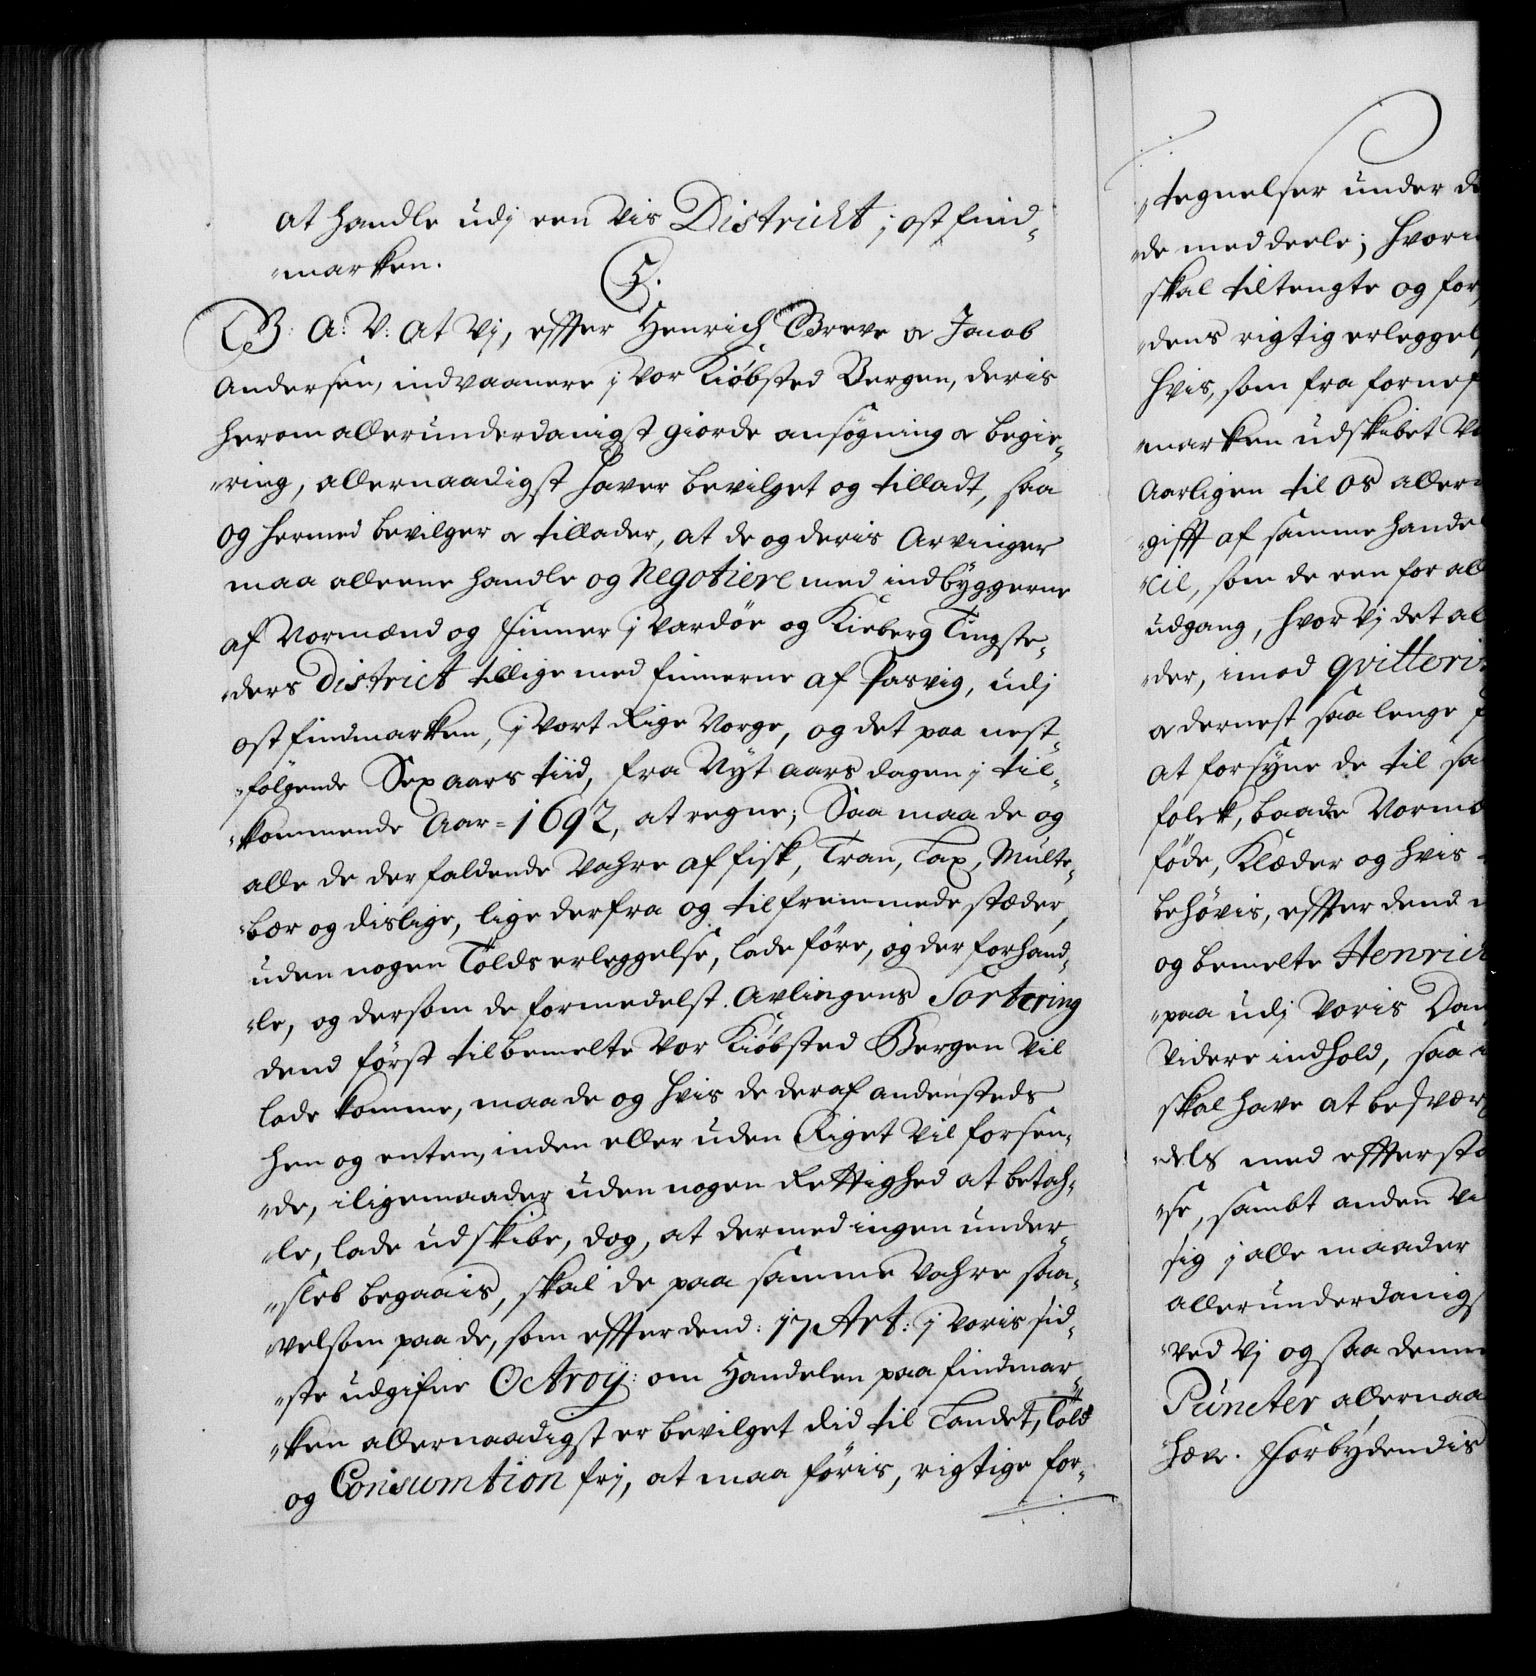 at handle udj een vis Districkt, j ost find-
marken.
C5.
G: A: V: at Vj, effter Henrich Greve & Jacob
Andersen, indvaanere j vor Kiøbsted Bergen, deris
herom allerunderdanigst giorde ansøgning & begie-
ring, allernaadigst haver bevilget og tilladt, saa
og hermed bevilger & tillader, at de og deris Arvinger
maa alleene handle og Negotiere med indbyggerne
af Normænd og Finner j Vardøe og Kieberg Tingste-
ders District tillige med finnerne af Pasvig, udj
ostfindmarken, j vort Rige Norge, og det paa nest-
følgende Sex aars tiid, fra Nyt aars dagen j til-
kommende Aar = 1692, at regne; Saa maa de og
alle de der faldende Vahre af fisk, Tran, Lax, Multe-
bær og dislige, lige derfra og til fremmede stæder,
uden nogen Tolds erleggelse, lade føre, og der forhand-
le, og dersom de formedelst Avlingens Sortering
dend først til bemelte vor Kiøbsted Bergen vil
lade komme, maa de og hvis de deraf andensteds
hen og enten, inden eller uden Riget vil forsen-
de, iligemaader uden nogen Rettighed at betah-
le, lade udskibe, dog, at dermed ingen under-
sleb begaais, skal de paa samme Vahre saa-
velsom paa de, som effter dend: 17 Art: j voris sid-
ste udgifne Octroy: om Handelen paa findmar-
ken allernaadigst er bevilget did til Landet, Told
og Consumtion frj, at maa føris, rigtige for-
tegnelser under d
de meddeele; hvori
skal tiltengte og for
dens rigtig erleggel
hvis, som fra fornef
marken udskibet v
Aarligen til os aller
gifft af samme hande
cil, som de een for all
udgang, hvor vj det al
der, imod qvitteri
& dernest saa lenge
at forsyne de til sa
folck, baade Normæ
føde, Klæder og hvis
behøvis, effter dend
og bemelte Henrich
paa udj voris Dan
videre indhold, saa
skal have at besvær
dels med effterst
se, sambt anden vi
sig j alle maader
allerunderdanigs
ved vj og saa denn
Puncter allernaa
hæv. Forbydendis